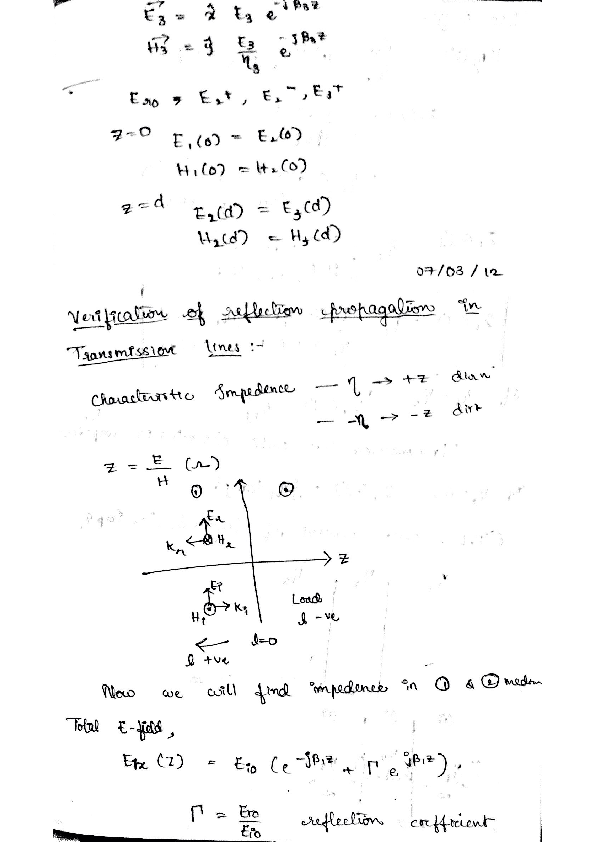 E⃗3 = x̂ E3 e^-jβ3z
H⃗3 = ŷ E3/η3 e^-jβ3z
Ero, E2+, E2-, E3+
z=0 E1(0) = E2(0)
H1(0) = H2(0)
z=d E2(d) = E3(d)
H2(d) = H3(d)
07/03/12
Verification of reflection propagation in
Transmission lines :-
Characteristic Impedence — η → +z dirn
— -η → -z dirn
Z = E/H (Ω)
① ②
Er
Kr Hr
Z
Ei
Hi Ki
Load
l -ve
l=0
l +ve
Now we will find impedence in ① & ② medm
Total E-field,
E1x(z) = Eio (e^-jβ1z + Γ e^jβ1z).
Γ = Ero/Eio reflection coefficient